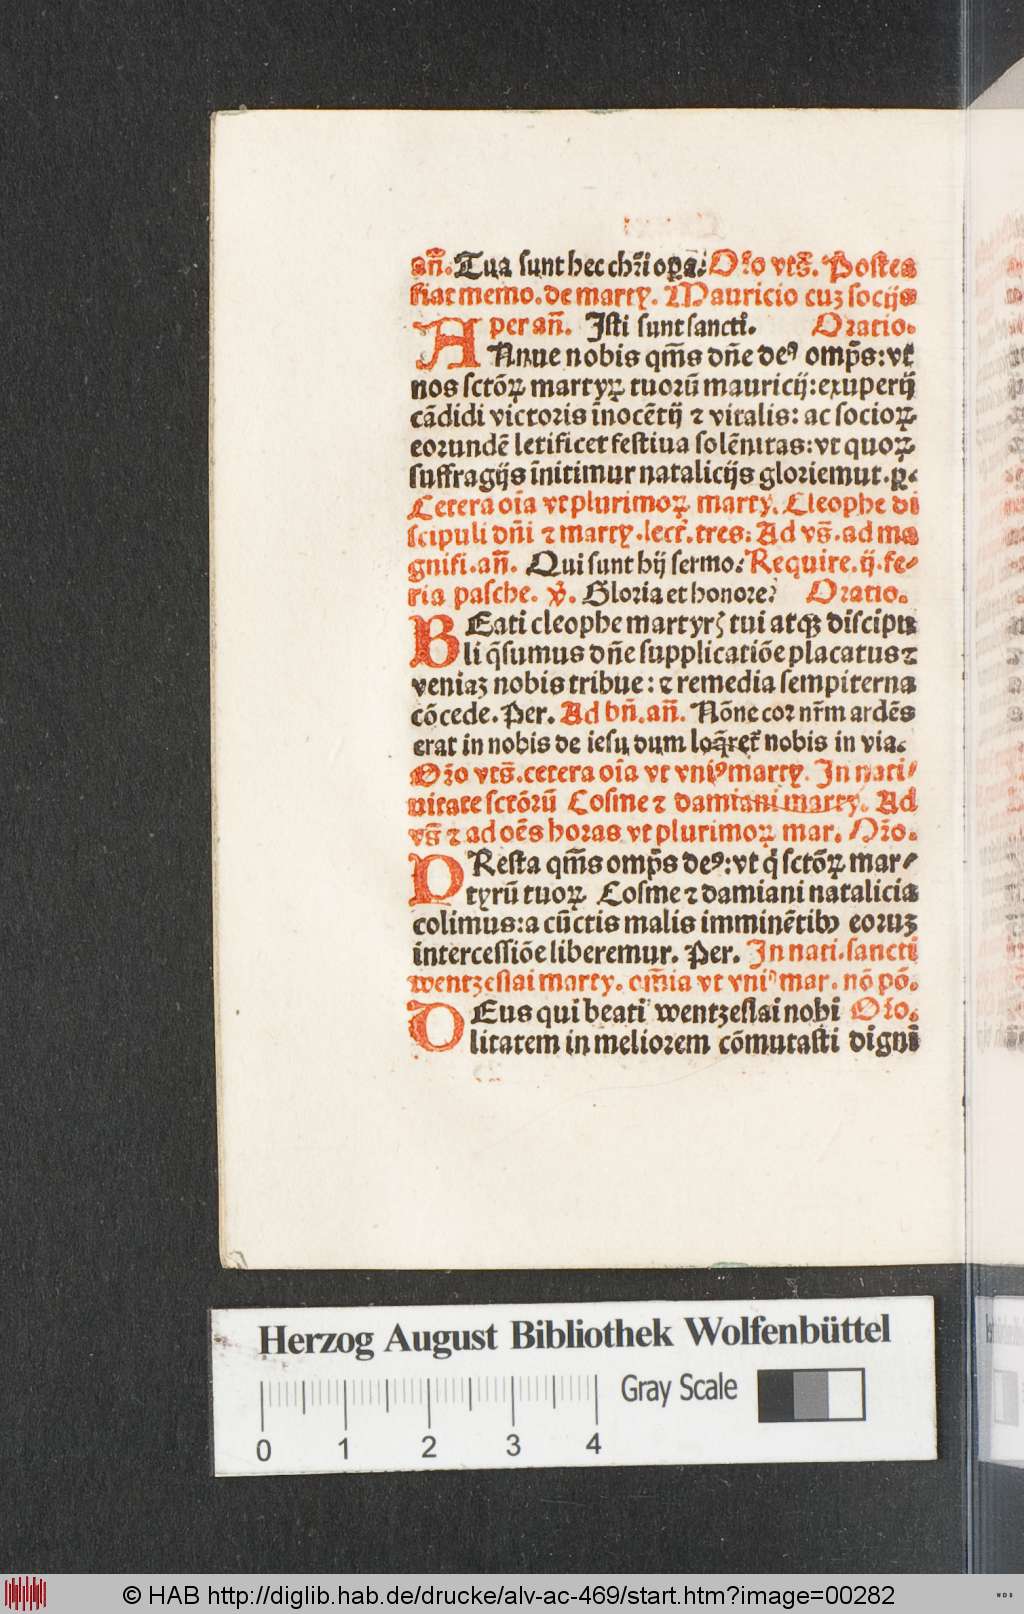 añ. Tua sunt hec chr̄i oꝑa: Oŕo vts̄. Postea
fiat memo. de martꝝ. Mauricio cuz socijs
per añ. Isti sunt sancti. Oratio.
ANnue nobis qm̄s dn̄e deꝰ omp̄s: vt
nos sctõꝝ martyꝝ tuorū mauricij: exuperij
cādidi victoris īnocētij ⁊ vitalis: ac socioꝝ
eorundē letificet festiua solēnitas: vt quoꝝ
suffragijs īnitimur natalicijs gloriemur. ꝑ.
Cetera oīa vt plurimoꝝ martꝝ. Cleophe di
scipuli dñi ⁊ martꝝ. lect̄. tres: Ad vs̄. ad ma
gnifi. añ. Qui sunt hij sermo: Require. ij. fe⸗
ria pasche. ꝟ. Gloria et honore: Oratio.
BEati cleophe martyrꝭ tui atqꝫ discipu
li q̄sumus dn̄e supplicatiōe placatus ⁊
veniaz nobis tribue: ⁊ remedia sempiterna
cōcede. Per. Ad bñ. añ. Nōne cor nr̄m ardēs
erat in nobis de iesu dum loq̄ret̄ nobis in via.
Oŕo vts̄. cetera oīa vt vniꝰ martꝝ. In nati⸗
uitate sctōrū Cosme ⁊ damiani martꝝ. Ad
vs̄ ⁊ ad oēs horas vt plurimoꝝ mar. Oŕo.
PResta qm̄s omp̄s deꝰ: vt q̇ sctōꝝ mar⸗
tyrū tuoꝝ Cosme ⁊ damiani natalicia
colimus: a cūctis malis imminētibꝰ eoruz
intercessiōe liberemur. Per. In nati. sancti
wentzeslai martꝝ. om̄ia vt vniꝰ mar. nō pō.
DEus qui beati wentzeslai nobi Oŕo.
litatem in meliorem cōmutasti digni
Herzog August Bibliothek Wolfenbüttel
Gray Scale
0 1 2 3 4
© HAB http://diglib.hab.de/drucke/alv-ac-469/start.htm?image=00282